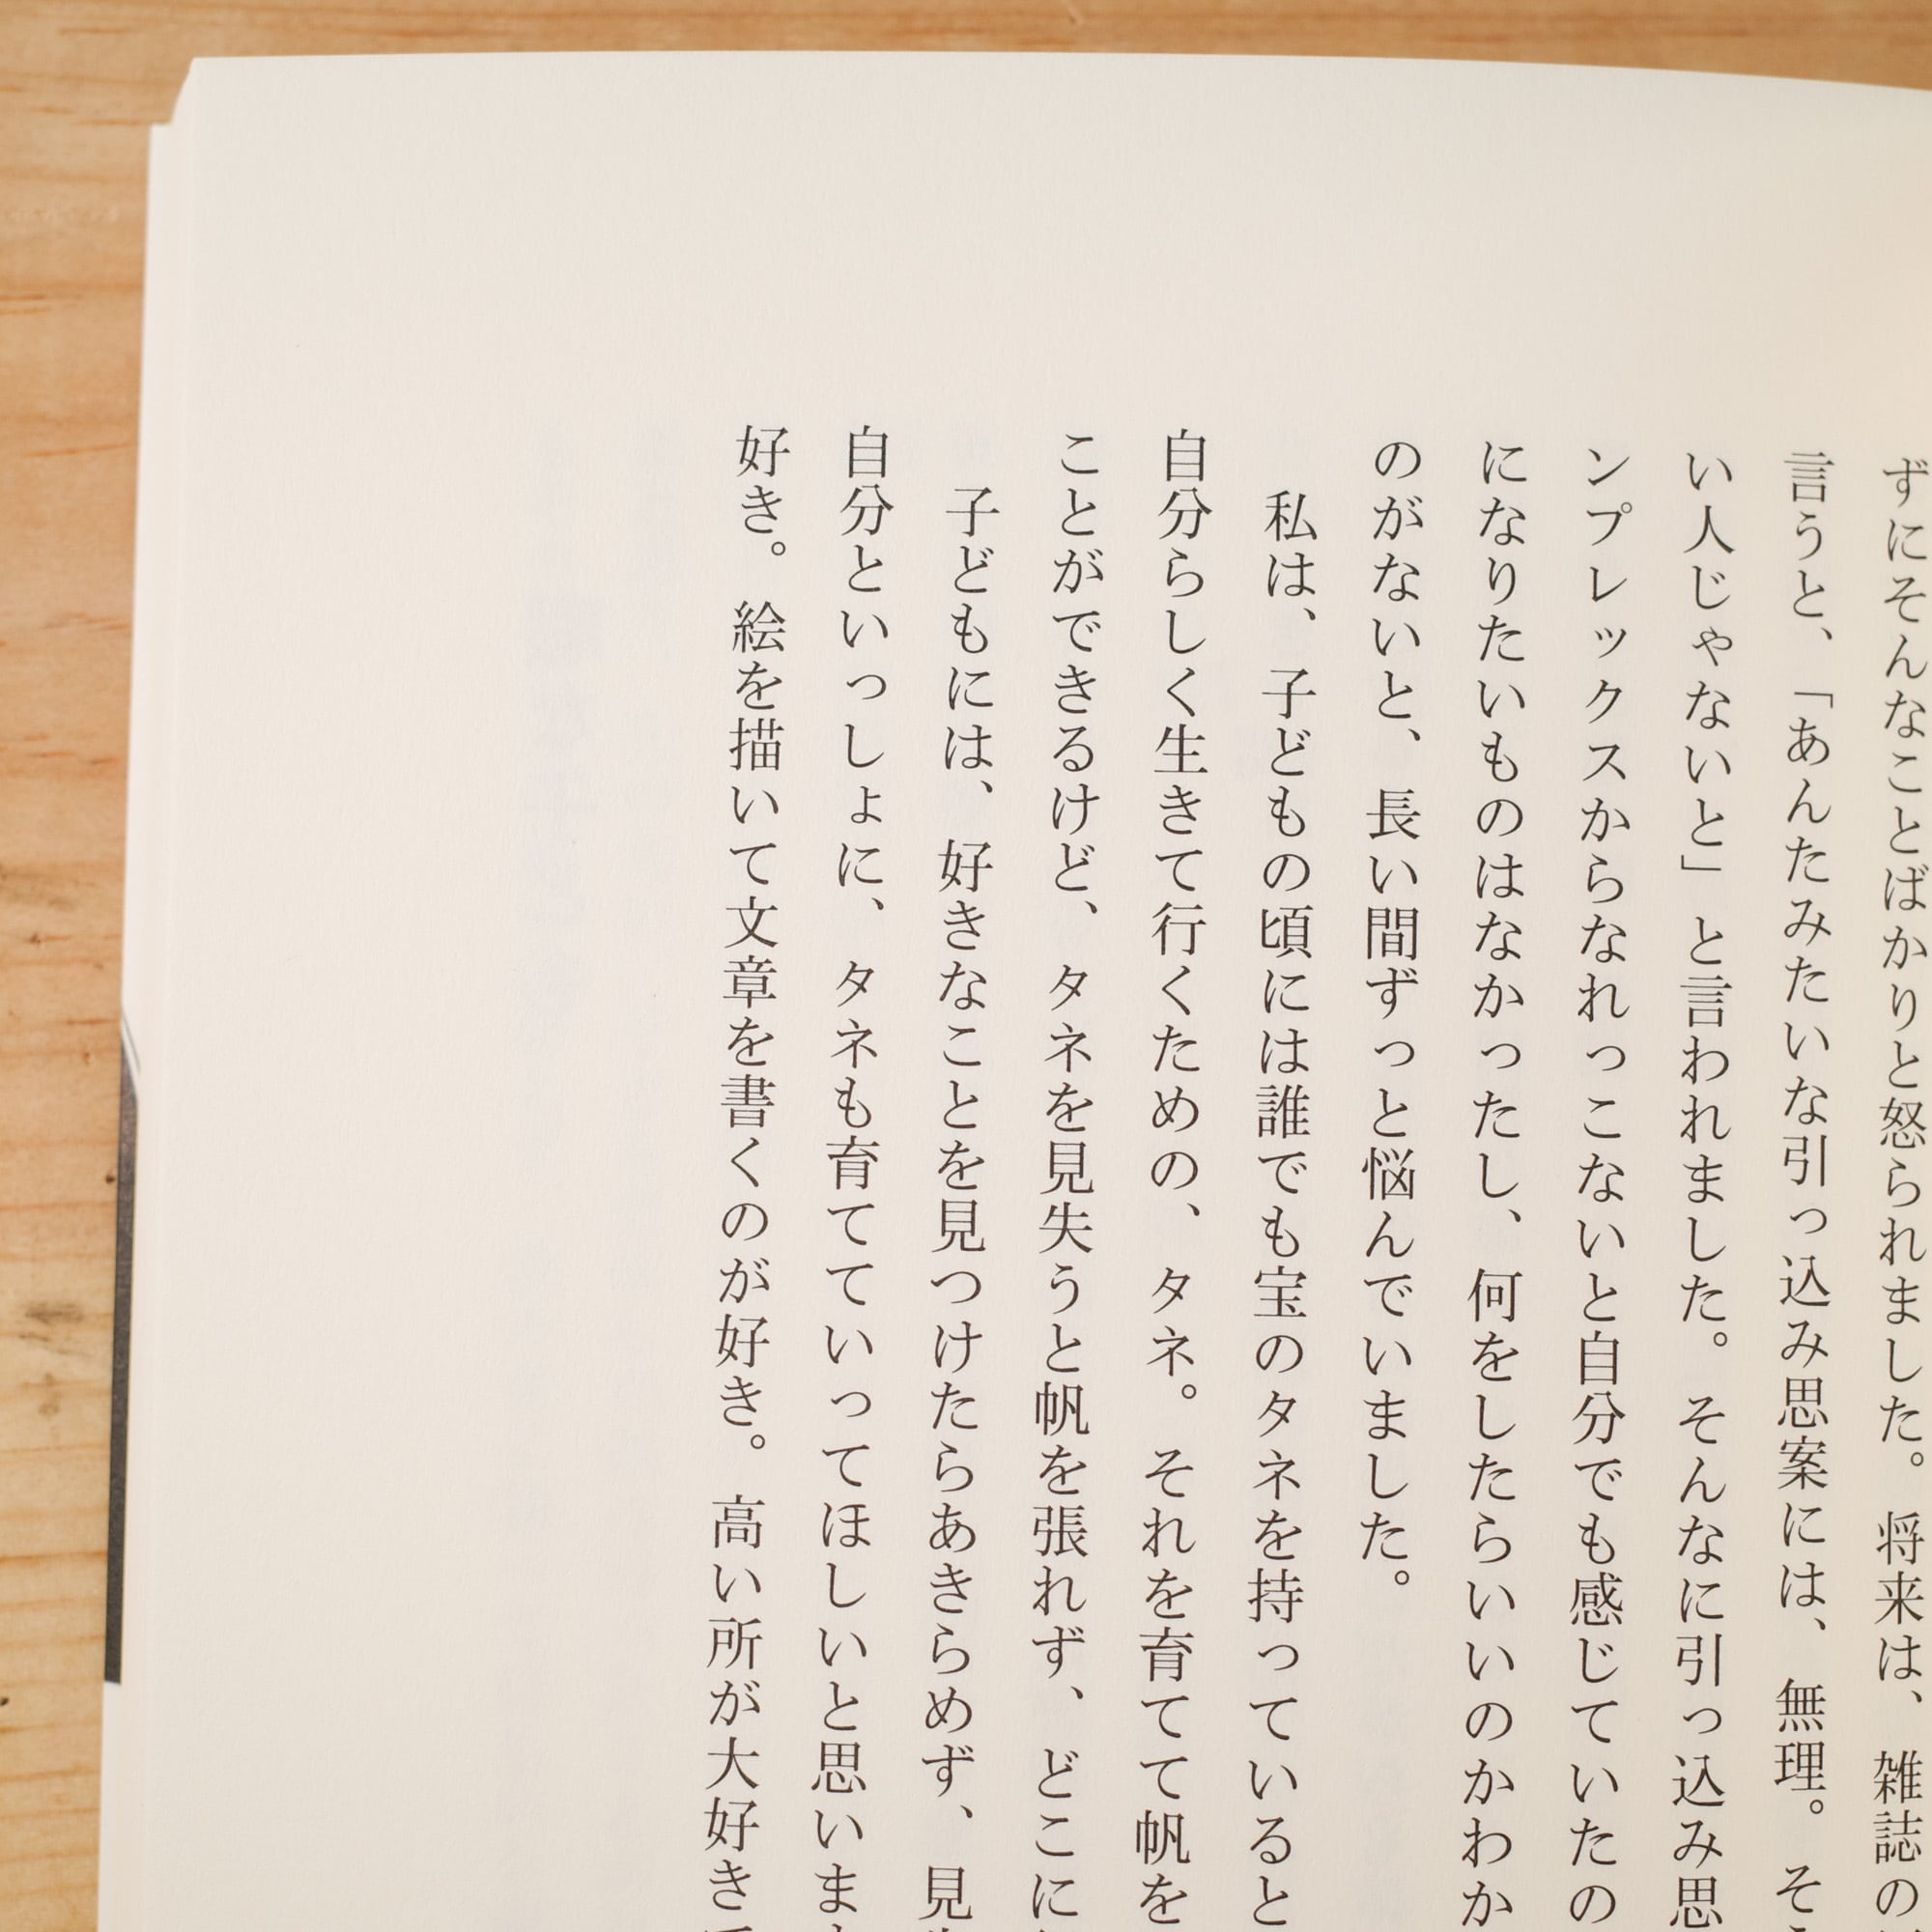 ずにそんなことばかりと怒られました。将来は、雑誌の
言うと、「あんたみたいな引っ込み思案には、無理。そ
い人じゃないと」と言われました。そんなに引っ込み思
ンプレックスからなれっこないと自分でも感じていたの
になりたいものはなかったし、何をしたらいいのかわか
のがないと、長い間ずっと悩んでいました。
私は、子どもの頃には誰でも宝のタネを持っていると
自分らしく生きて行くための、タネ。それを育てて帆を
ことができるけど、タネを見失うと帆を張れず、どこに
子どもには、好きなことを見つけたらあきらめず、見
自分といっしょに、タネも育てていってほしいと思いま
好き。絵を描いて文章を書くのが好き。高い所が大好き